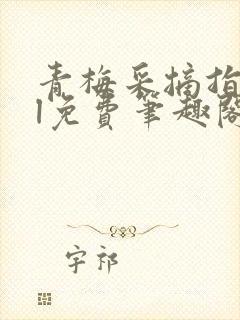 青梅采摘指
1免费笔趣阁
字祁